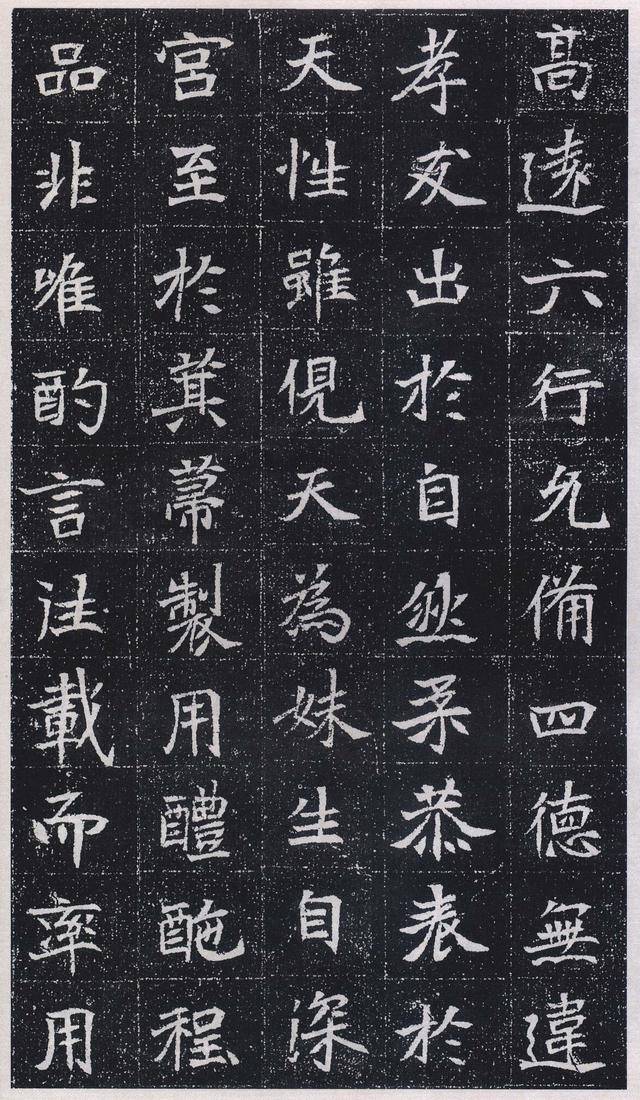 高遠六行允備四德無違
孝友出於自然柔恭表於
天性雖俔天為妹生自深
宮至於箕蒂製用醴酏程
品非唯酌言往載而率用